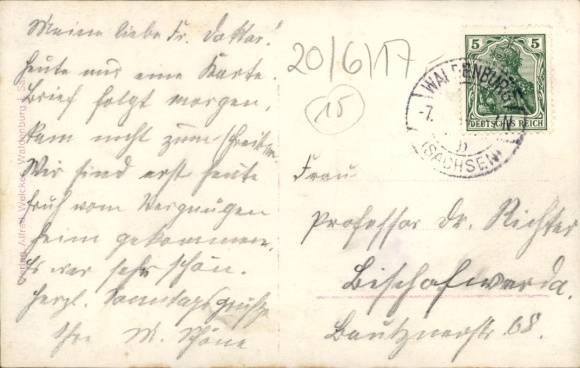 Meine liebe Fr. Doktor!
heute nur eine Karte.
Brief folgt morgen,
kam nicht zum schreiben
Wir sind erst heute
früh vom Vergnügen
heim gekommen,
Es war sehr schön.
Herzl. Sonntagsgrüße
Ihre M. Schöne
20/6/17
15
5 5
DEUTSCHES REICH
WALDENBURG
-7.
(SACHSEN)
Frau
Professor Dr. Richter
Bischofswerda.
Bautznerstr. 68.
Alfred Welcker, Waldenburg i. Sa.